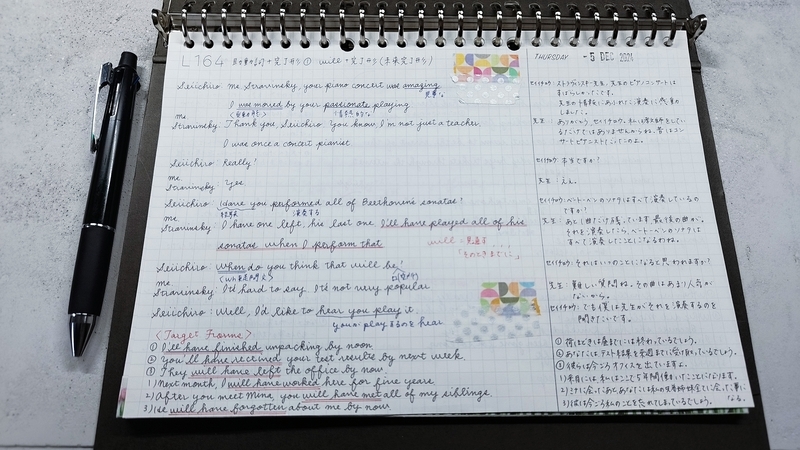 L164 助動詞+完了形① will+完了形(未来完了形)
THURSDAY - 5 DEC 2024
Seiichiro: Ms. Stravinsky, your piano concert was amazing.
見事な
I was moved by your passionate playing
Ms.
Stravinsky: Thank you, Seiichiro. You know I'm not just a teacher.
I was once a concert pianist
Seiichiro: Really?
Ms.
Stravinsky: Yes.
Seiichiro: Have you performed all of Beethoven's sonatas?
演奏する
Ms.
Stravinsky: I have one left, his last one. I'll have played all of his
sonatas when I perform that
will
「そのときまでに」
Seiichiro: When do you think that will be?
Ms.
Stravinsky: It'd hard to say. It'd not very popular
Seiichiro: Well, I'd like to hear you play it.
<Target Frame>
① I'll have finished unpacking by noon
② You'll have received your test results by next week.
③ They will have left the office by now.
1) Next month, I will have worked here for five years.
2) After you meet Mina, you will have met all of my siblings.
3) He will have forgotten about me by now
セイイチロウ: ストラヴィンスキー先生、先生のピアノコンサートは
すばらしかったです。
先生の情熱にあふれた演奏に感動
しました。
先生: ありがとう、セイイチロウ。
セイイチロウ: 本当ですか?
先生: ええ。
セイイチロウ: ベートーベンのソナタはすべて演奏しているの
ですか?
先生: あと1曲だけ残っています。最後の曲が。
それを演奏したら、ベートーベンのソナタは
すべて演奏したことになるわね。
セイイチロウ: それはいつのことになると思われますか?
先生: 難しい質問ね。その曲はあまり人気が
ないから。
セイイチロウ: でも僕は先生がそれを演奏するのを
聞きたいです。
① 荷ほどきは正午までには終わっているでしょう。
② あなたはテスト結果を来週までに受け取っているでしょう。
③ 彼らは今ごろオフィスを出ていますよ。
1) 来月には私はここで5年間働いたことになります。
3) 彼は今ごろ私のことを忘れてしまっているでしょう。